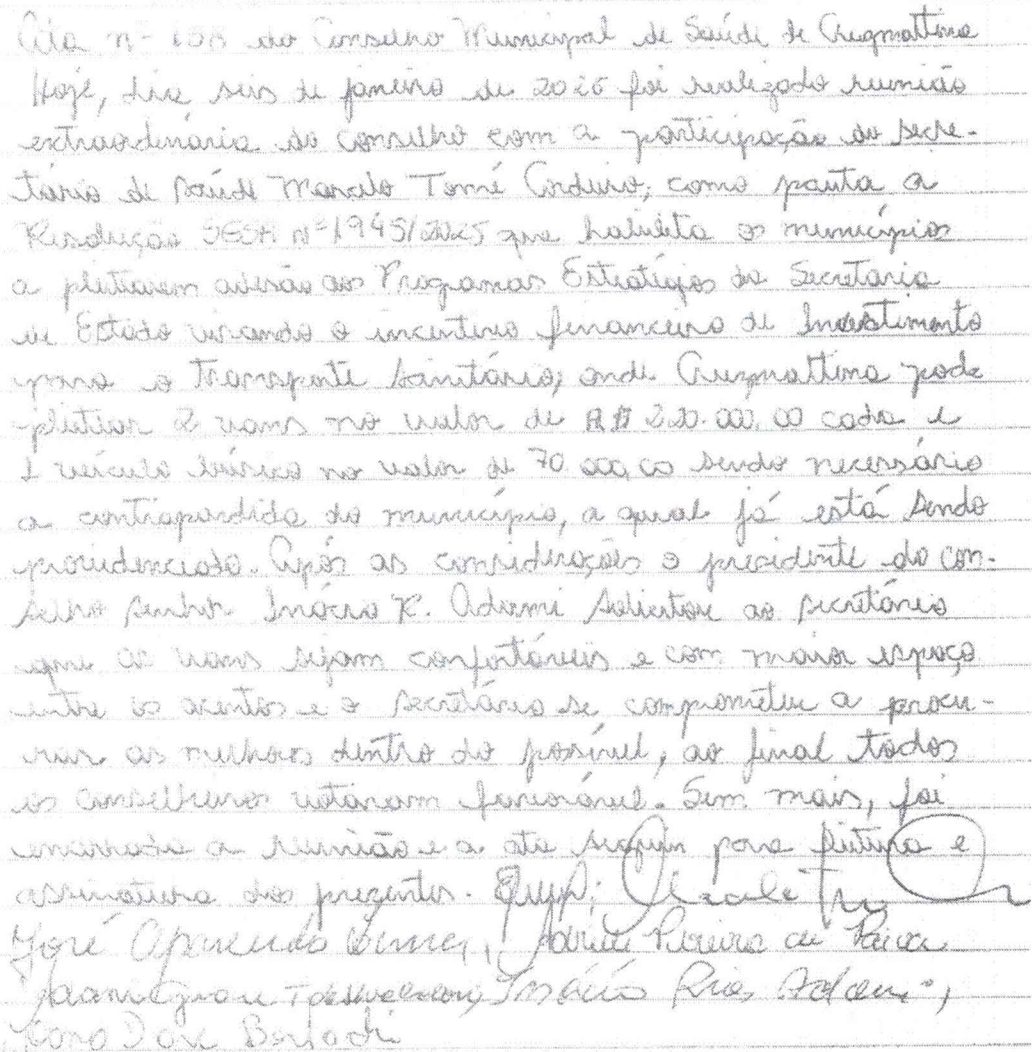 Ata nº 108 do Conselho Municipal de Saúde de Cruzmaltina
Hoje, dia seis de janeiro de 2026 foi realizado reunião
extraordinária do conselho com a participação do secre-
tário de saúde Marcelo Tomé Cordeiro, como pauta a
Resolução SESA nº 1945/2025 que habilita os municípios
a pleitearem adesão aos Programas Estratégios da Secretaria
de Estado visando o incentivo financeiro de Investimento
para o Transporte Sanitário; onde Cruzmaltina pode
pleitear 2 vans no valor de R$ 220.000,00 cada e
1 veículo básico no valor de 70.000,00 sendo necessário
a contrapardida do município, a qual já está sendo
providenciada. Após as considerações o presidente do con-
selho senhor Inácio R. Adami solicitou ao secretário
que as vans sejam confortáveis e com maior espaço
entre os acentos e o secretário se comprometeu a procu-
rar as melhores dentro do possível, ao final todos
os conselheiros votaram favorável. Sem mais, foi
encerrada a reunião e a ata seguiu para leitura e
assinatura dos presentes.
José Aparecido Gomes, Pereira de Paiva
Inácio Rios Adami,
José